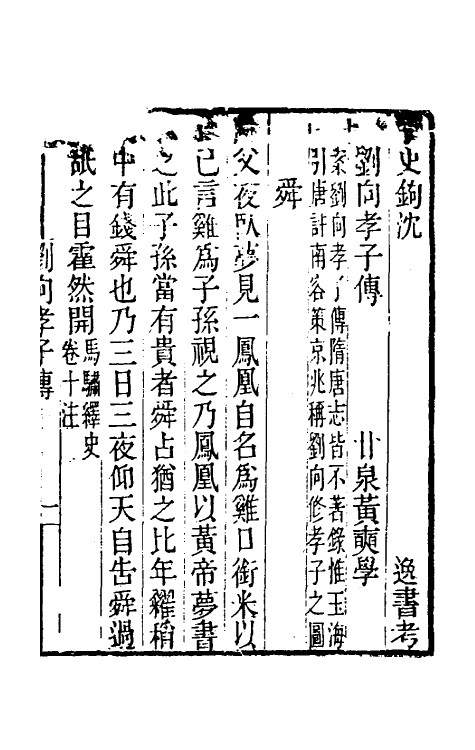 史鉤沈 逸書考
劉向孝子傳 甘泉黃奭學
案劉向孝子傳隋唐志皆不著錄惟玉海
引唐許南容策京兆稱劉向修孝子之圖
舜
父夜臥夢見一鳳凰自名爲雞口銜米以
己言雞爲子孫視之乃鳳凰以黃帝夢書
之此子孫當有貴者舜占猶之比年糴稻
中有錢舜也乃三日三夜仰天自告舜過
舐之目霍然開馬驌繹史
卷十注
劉向孝子傳 一